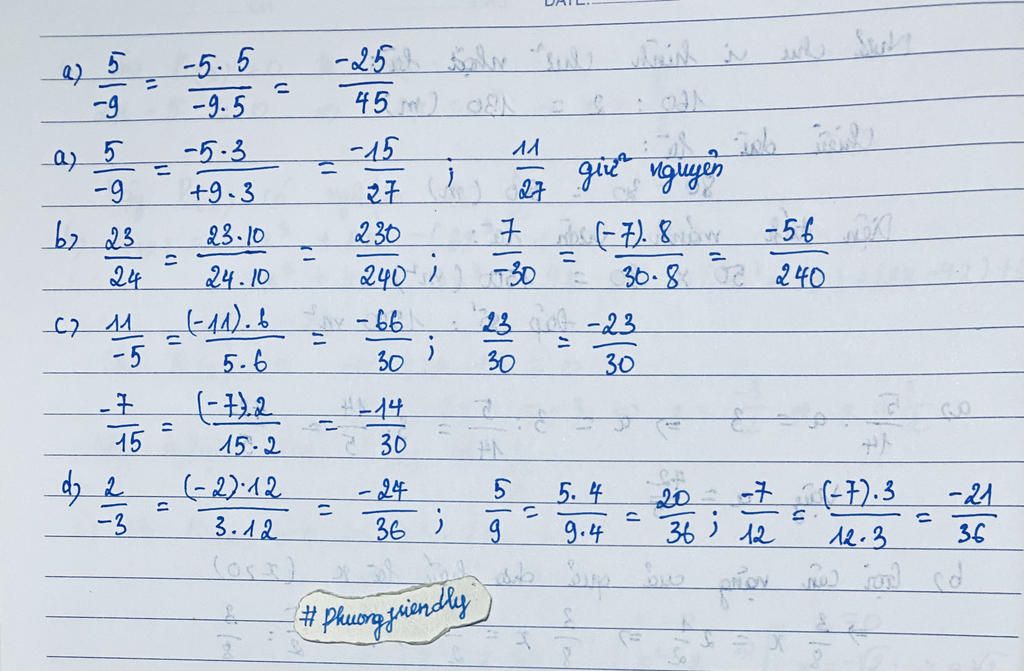 DATE:
a) 5/-9 = -5.5/-9.5 = -25/45
a) 5/-9 = -5.3/+9.3 = -15/27 ; 11/27 giữ nguyên
b) 23/24 = 23.10/24.10 = 230/240 ; 7/-30 = (-7).8/30.8 = -56/240
c) 11/-5 = (-11).6/5.6 = -66/30 ; 23/30 = -23/30
-7/15 = (-7).2/15.2 = -14/30
d) 2/-3 = (-2).12/3.12 = -24/36 ; 5/9 = 5.4/9.4 = 20/36 ; -7/12 = (-7).3/12.3 = -21/36
#phuongfriendly